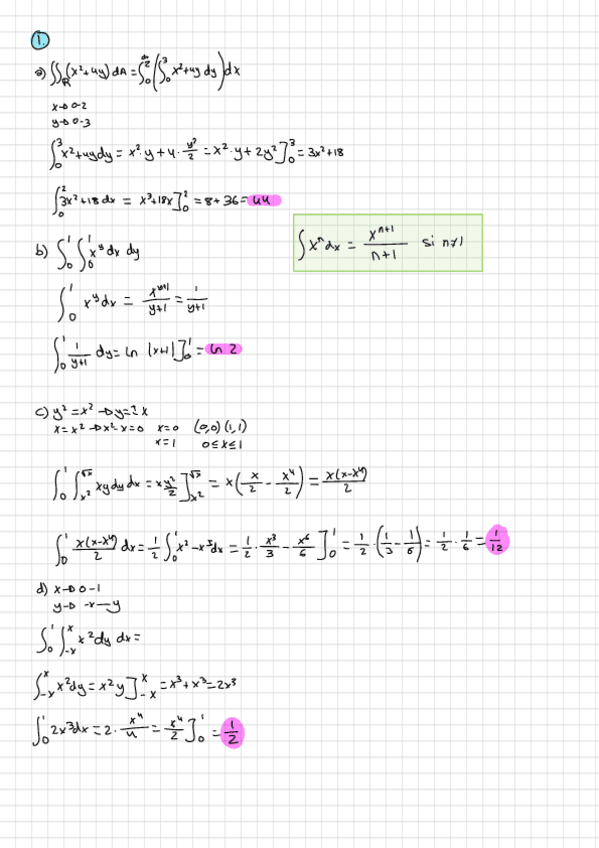 1.
a) ∬_R (x²+4y) dA = ∫₀² (∫₀³ x²+4y dy) dx
x→ 0-2
y→ 0-3
∫₀³ x²+4y dy = x²·y+4·y²/2 = x²·y+2y²]₀³ = 3x²+18
∫₀² 3x²+18 dx = x³+18x]₀² = 8+36 = 44
∫xⁿdx = xⁿ⁺¹/n+1 si n≠1
b) ∫₀¹ ∫₀¹ x^y dx dy
∫₀¹ x^y dx = x^(y+1)/y+1 = 1/y+1
∫₀¹ 1/y+1 dy = ln |x+1|]₀¹ = ln 2
c) y² = x² → y = ± x
x = x² → x²-x=0 x=0 (0,0) (1,1)
x=1 0≤x≤1
∫₀¹ ∫_x²^√x xy dy dx = x y²/2]_x²^√x = x(x/2 - x⁴/2) = x(x-x⁴)/2
∫₀¹ x(x-x⁴)/2 dx = 1/2 ∫₀¹ x²-x⁵dx = 1/2 · x³/3 - x⁶/6]₀¹ = 1/2 · (1/3 - 1/6) = 1/2 · 1/6 = 1/12
d) x→ 0-1
y→ -x—y
∫₀¹ ∫₋ₓˣ x² dy dx =
∫₋ₓˣ x²dy = x²y]₋ₓˣ = x³+x³ = 2x³
∫₀¹ 2x³dx = 2· x⁴/4 = x⁴/2]₀¹ = 1/2